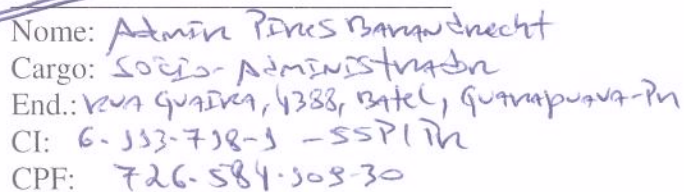 Nome: Admir Pires Barandrecht
Cargo: Sócio-Administrador
End.: Rua Guaíra, 4388, Batel, Guarapuava-Pr
CI: 6.113.718-1 - SSP/Pr
CPF: 726.584.109-30